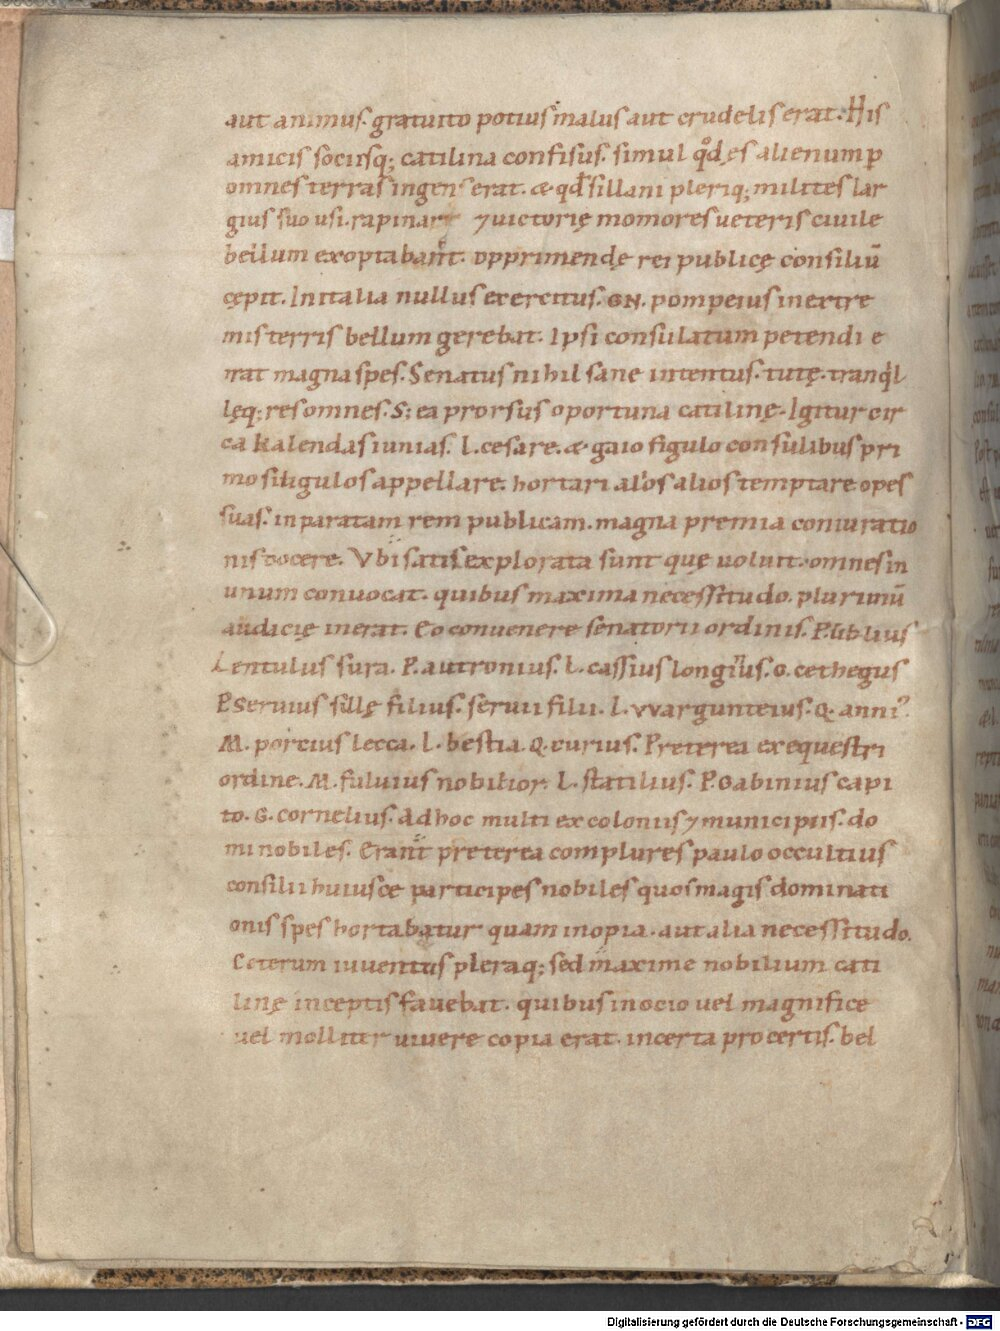 aut animus. gratuito potius malus aut crudelis erat. His
amicis sociisq; catilina confisus. simul qđ ęs alienum ꝑ
omnes terras ingens erat. & qđ sillani pleriq; milites lar
gius suo usi. rapinar 7 uictorię momores ueteris ciuile
bellum exoptabant. opprimendę rei publicę consiliū
cępit. In italia nullus exercitus. GN. pompeius in extre
mis terris bellum gerebat. Ipsi consulatum petendi e
rrat magna spes. Senatus nihil sane intentus. tutę. tranqͥl
lęq; res omnes. S; ea prorsus oportuna catilinę. Igitur cir
ca kalendas iunias. L. cesare. & gaio figulo consulibus pri
mo siligulos appellare. hortari alios alios temptare. opes
suas. inparatam rem publicam. magna premia coniuratio
nis docere. Vbi satis explorata sunt quę uoluit. omnes in
unum conuocat. quibus maxima necessitudo. plurimū
audicię inerat. Eo conuenere senatorii ordinis. Publius
Lentulus sura. P. autronius. L. cassius longinus. G. cethegus
P. Seruius sillę filius. seruii filii. L. vvargunteius. Q. anniꝰ.
M. porcius lecca. L. bestia. Q. curius. Preterea ex equestri
ordine. M. fuluius nobilior. L. statilius. P. Gabinius capi
to. G. cornelius. Ad hoc multi ex coloniis 7 municipiis. do
mi nobiles. Erant preterea complures paulo occultius
consilii huiusce participes nobiles quos magis dominati
onis spes hortabatur quam inopia. aut alia necessitudo.
Ceterum iuuentus pleraq; sed maxime nobilium cati
linę inceptis fauebat. quibus in ocio uel magnifice
uel molliter uiuere copia erat. incerta pro certis. bel
Digitalisierung gefördert durch die Deutsche Forschungsgemeinschaft - DFG